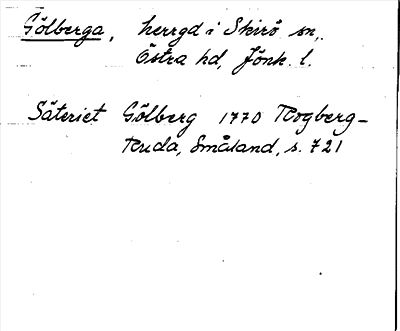 Gölberga, herrgd i Skirö sn,
Östra hd, Jönk. l.
Säteriet Gölberg 1770 Rogberg-
Ruda, Småland, s. 721